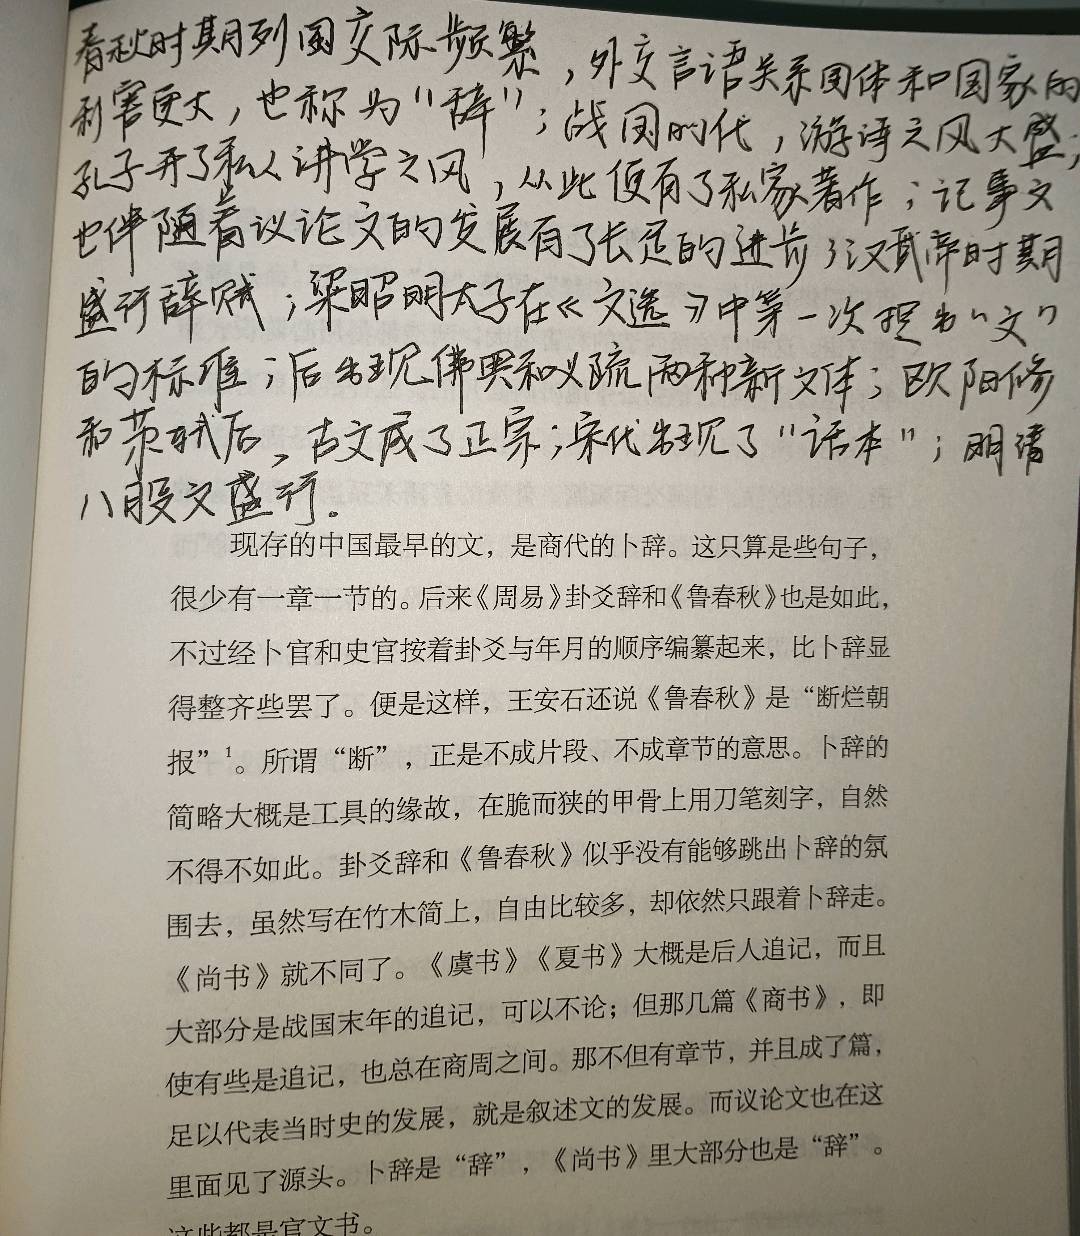 春秋时期列国交际频繁，外交言语关系团体和国家的
利害更大，也称为“辞”；战国时代，游谆之风大盛；
孔子开了私人讲学之风，从此便有了私家著作；记事文
也伴随着议论文的发展有了长足的进步；汉武帝时期
盛行辞赋；梁昭明太子在《文选》中第一次提出“文”
的标准；后出现佛典和义疏两种新文体；欧阳修
和苏轼后，古文成了正宗；宋代出现了“话本”；明清
八股文盛行。
现存的中国最早的文，是商代的卜辞。这只算是些句子，
很少有一章一节的。后来《周易》卦爻辞和《鲁春秋》也是如此，
不过经卜官和史官按着卦爻与年月的顺序编纂起来，比卜辞显
得整齐些罢了。便是这样，王安石还说《鲁春秋》是“断烂朝
报”¹。所谓“断”，正是不成片段、不成章节的意思。卜辞的
简略大概是工具的缘故，在脆而狭的甲骨上用刀笔刻字，自然
不得不如此。卦爻辞和《鲁春秋》似乎没有能够跳出卜辞的氛
围去，虽然写在竹木简上，自由比较多，却依然只跟着卜辞走。
《尚书》就不同了。《虞书》《夏书》大概是后人追记，而且
大部分是战国末年的追记，可以不论；但那几篇《商书》，即
使有些是追记，也总在商周之间。那不但有章节，并且成了篇，
足以代表当时史的发展，就是叙述文的发展。而议论文也在这
里面见了源头。卜辞是“辞”，《尚书》里大部分也是“辞”。
这些都是官文书。